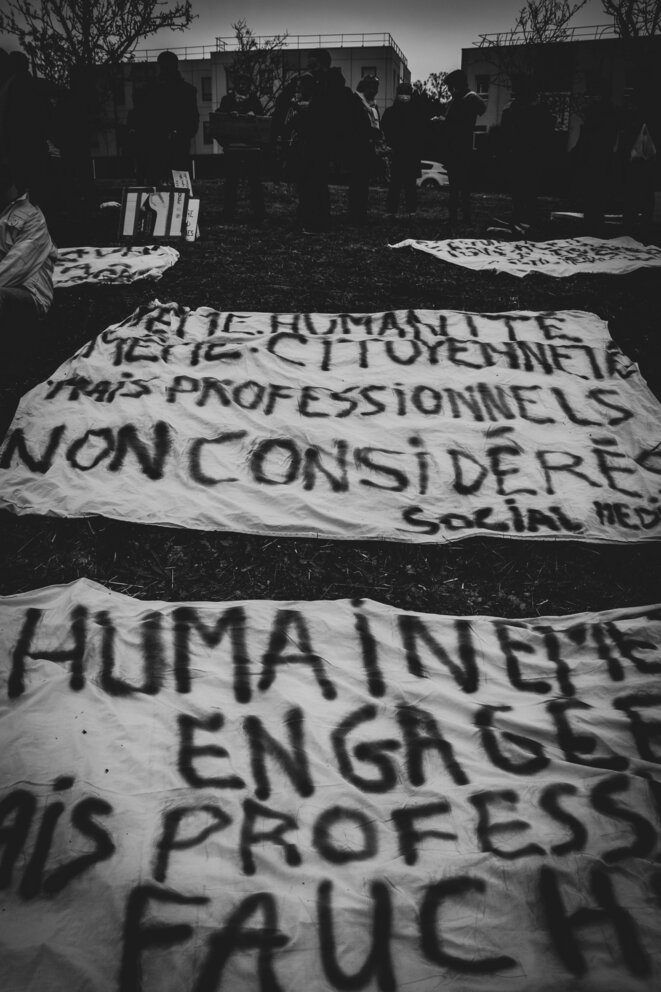 MÊME HUMANITE
MÊME CITOYENNETÉ
MAIS PROFESSIONNELS
NON CONSIDÉRÉS
SOCIAL MEDI
HUMAINEME
ENGAGEE
AIS PROFESS
FAUCH